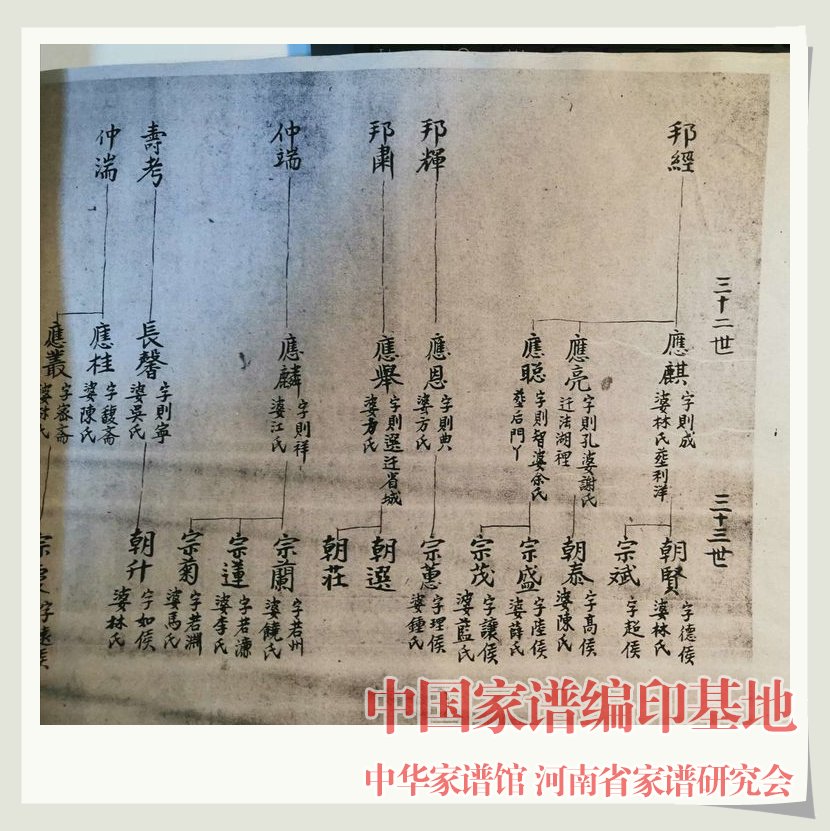 三十二世
三十三世
邦經
邦輝
邦肅
仲端
壽考
仲湍
應麒
字則成
娶林氏葬利洋
應亮
字則孔娶謝氏
迁法湖裡
應聪
字則智娶余氏
葬后門丫
應恩
字則典
娶方氏
應舉
字則選迁省城
娶方氏
應麟
字則祥
娶江氏
長馨
字則寧
娶吳氏
應桂
字馥斋
娶陳氏
應叢
字蓉斋
娶林氏
朝賢
字德侯
娶林氏
宗斌
字超侯
朝泰
字高侯
娶陳氏
宗盛
字陸侯
娶薛氏
宗茂
字讓侯
娶藍氏
宗蕙
字理侯
娶鍾氏
朝選
朝莊
宗蘭
字若州
娶饒氏
宗蓮
字若濂
娶李氏
宗菊
字若淵
娶馬氏
朝升
字如侯
娶林氏
宗
字遠侯
中国家谱编印基地
中华家谱馆 河南省家谱研究会